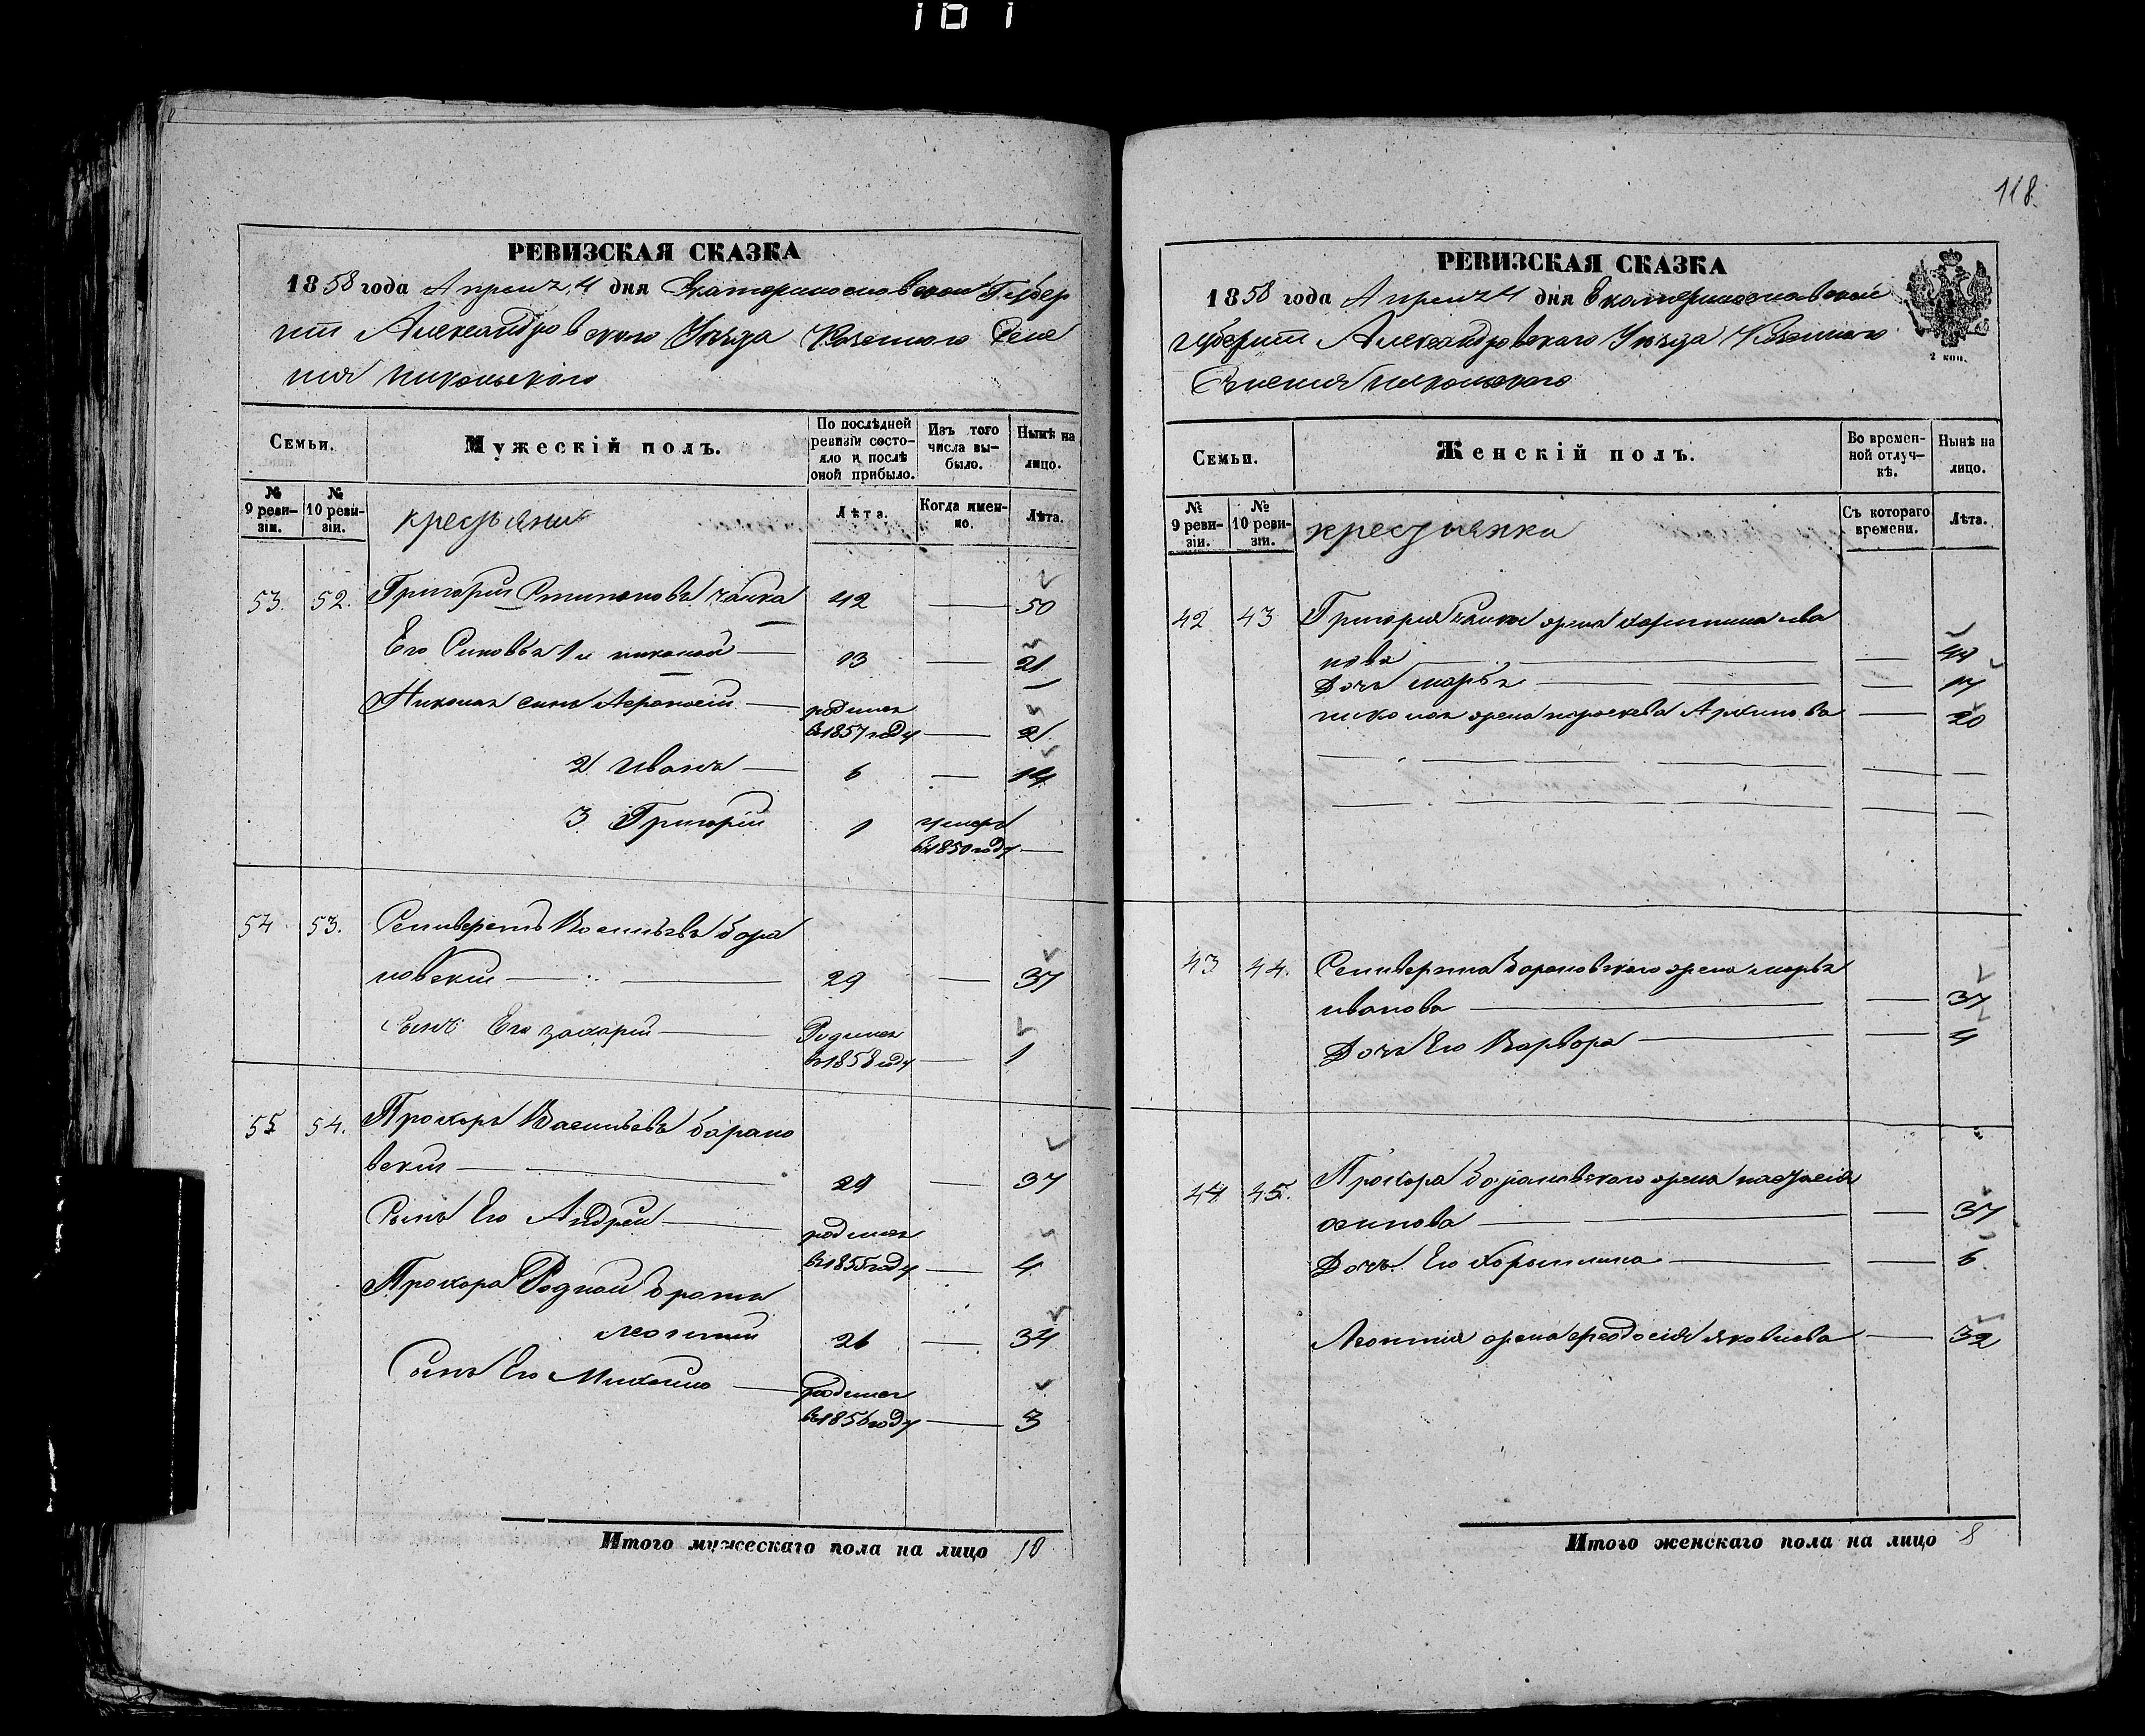 118.
РЕВИЗСКАЯ СКАЗКА
1858 года Апреля 4 дня Екатеринославской Губер
нии Александровского Уезда Казенного Селе
ния Никольского
Семьи.
Мужескій полъ.
По послѣдней ревизіи состояло и послѣ оной прибыло.
Изъ того числа выбыло.
Нынѣ на лицо.
№ 9 ревизіи.
№ 10 ревизіи.
крестьяни
Лѣта.
Когда именно.
Лѣта.
53. 52. Григорий Степановъ Чайка 42 — 50
Его Синовья 1й николай — 13 — 21
Николая синъ Афанасий — родился
в 1857 году — 2
2 Иванъ — 6 — 14
3 Григорій 1 умеръ
въ 1850 году —
54 53. Селиверстъ Васильевъ Бора
новский — 29 — 37
Сынъ Его захарий — Родился
въ 1858 году — 1
55 54. Прохоръ Васильевъ Барано
вский — 29 — 37
Сынъ Его Андрей — родился
въ 1855 году — 4
Прохора Родной Братъ
леонтий 26 — 34
Сынъ Его Михаило — родился
въ 1856 году — 3
Итого мужескаго пола на лицо 10
РЕВИЗСКАЯ СКАЗКА
1858 года Апреля 4 дня Екатеринославской
губернии Александровского Уезда Казенного
Сѣления никольского
2 коп.
Семьи.
Женскій полъ.
Во временной отлучкѣ.
Нынѣ на лицо.
№ 9 ревизіи.
№ 10 ревизіи.
крестьянки
Съ котораго времени.
Лѣта.
42 43 Григория Чайки жена Харитина ива
нова — — 44
Дочь марья — — 17
николая жена параскева Архипова — 20
43 44. Селиверста Барановского жена марья
иванова — — 37
Дочь Его Варвора — — 4
44 45. Прохора Барановского жена настасия
осипова — — 37
Дочь Его Харитина — — 6
Леонтия жена феодосия яковлева — 32
Итого женскаго пола на лицо 8